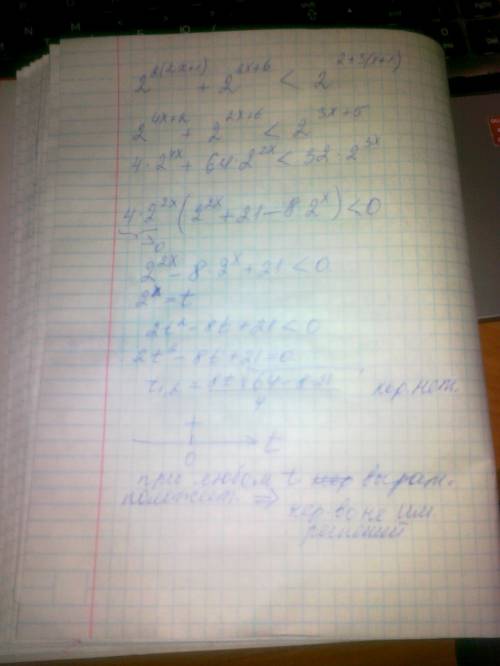 2^{2(2x+1)} + 2^{2x+6} < 2^{2+3(x+1)}
2^{4x+2} + 2^{2x+6} < 2^{3x+5}
4·2^{4x} + 64·2^{2x} < 32·2^{3x}
4·2^{2x} (2^{2x} + 21 - 8·2^x) < 0
>0
2^{2x} - 8·2^x + 21 < 0
2^x = t
2t² - 8t + 21 < 0
2t² - 8t + 21 = 0
t_{1,2} = кор. нет.
+
0 t
при любом t выраж.
положит. ⇒
нер-во не им
решений